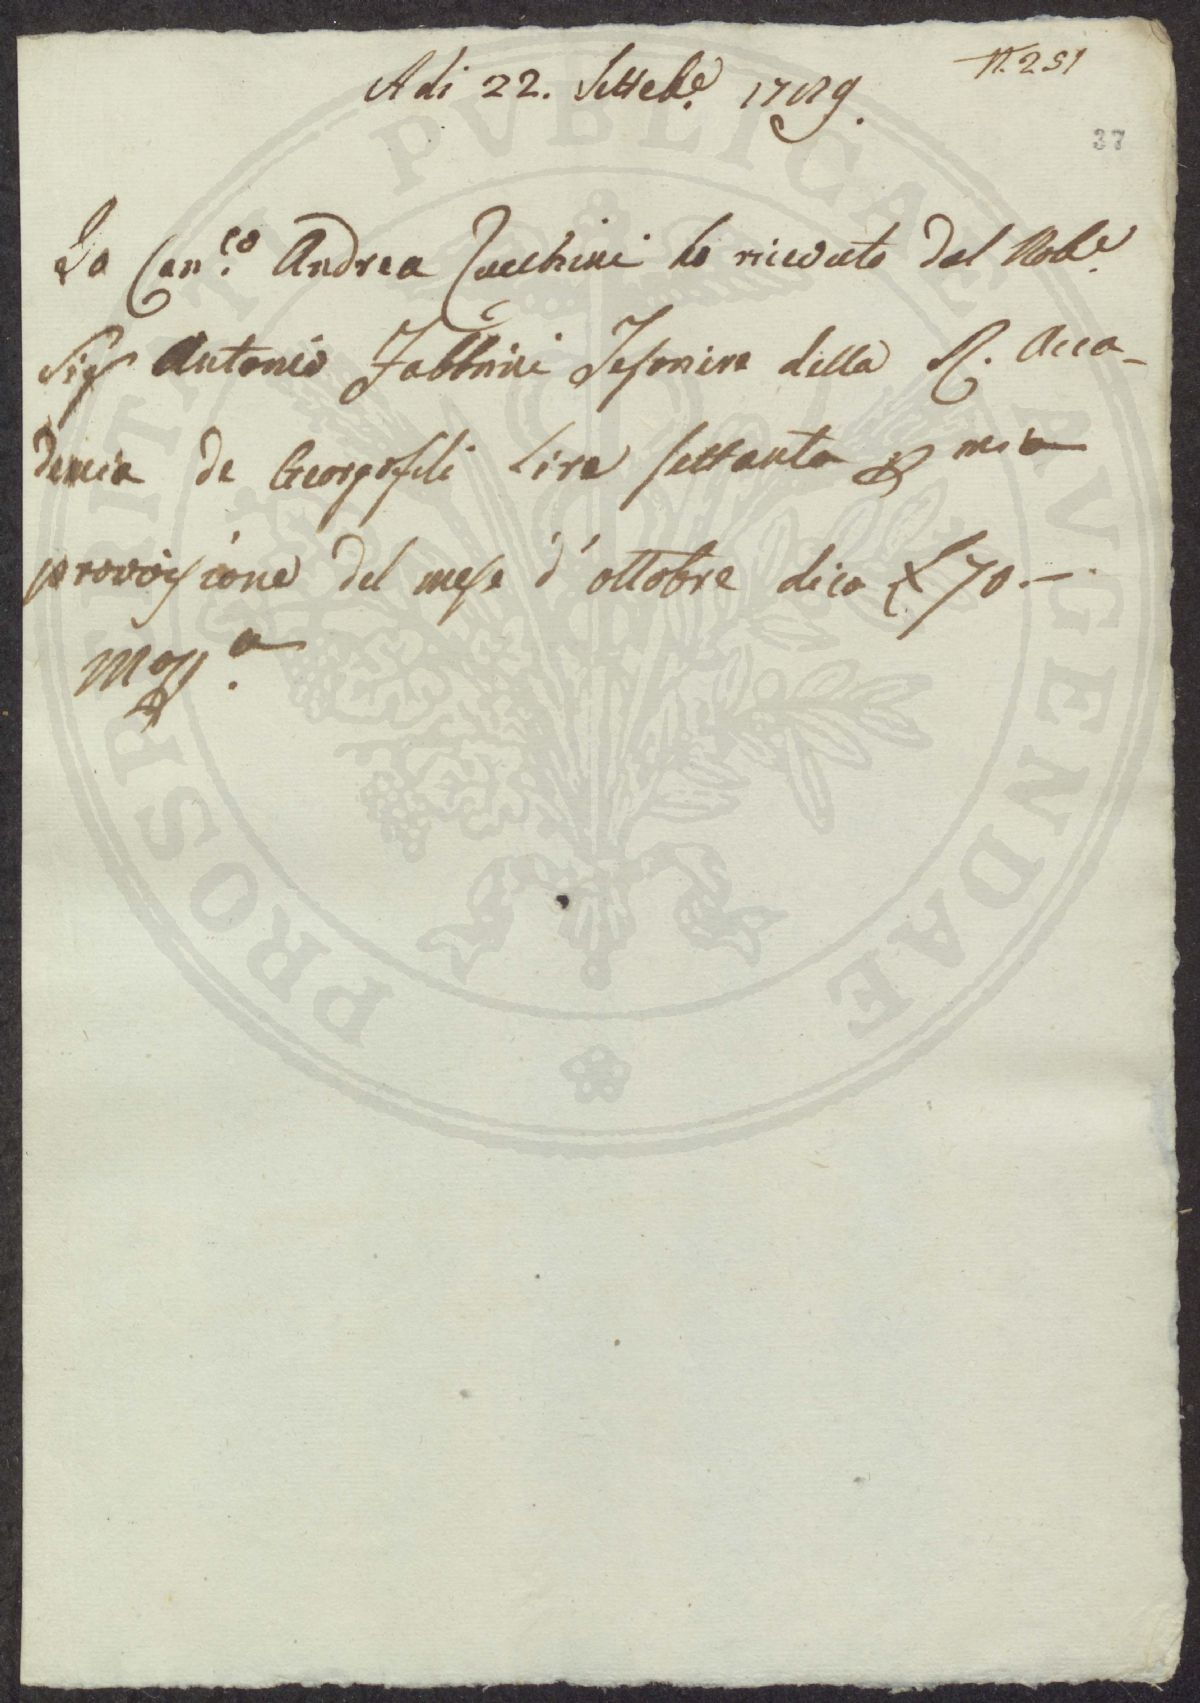 N. 251
Adi 22. Setteb.e 1789.
37
Io Can.co Andrea Zucchini ho ricevuto dal Nob.e
Sig Antonio Fabbrini Tesoriere della R. Acca-
demia de Georgofili Lire settanta p mia
provvisione del mese d'ottobre dico £ 70.-.
PROSPERITATI PVBLICAE AVGENDAE